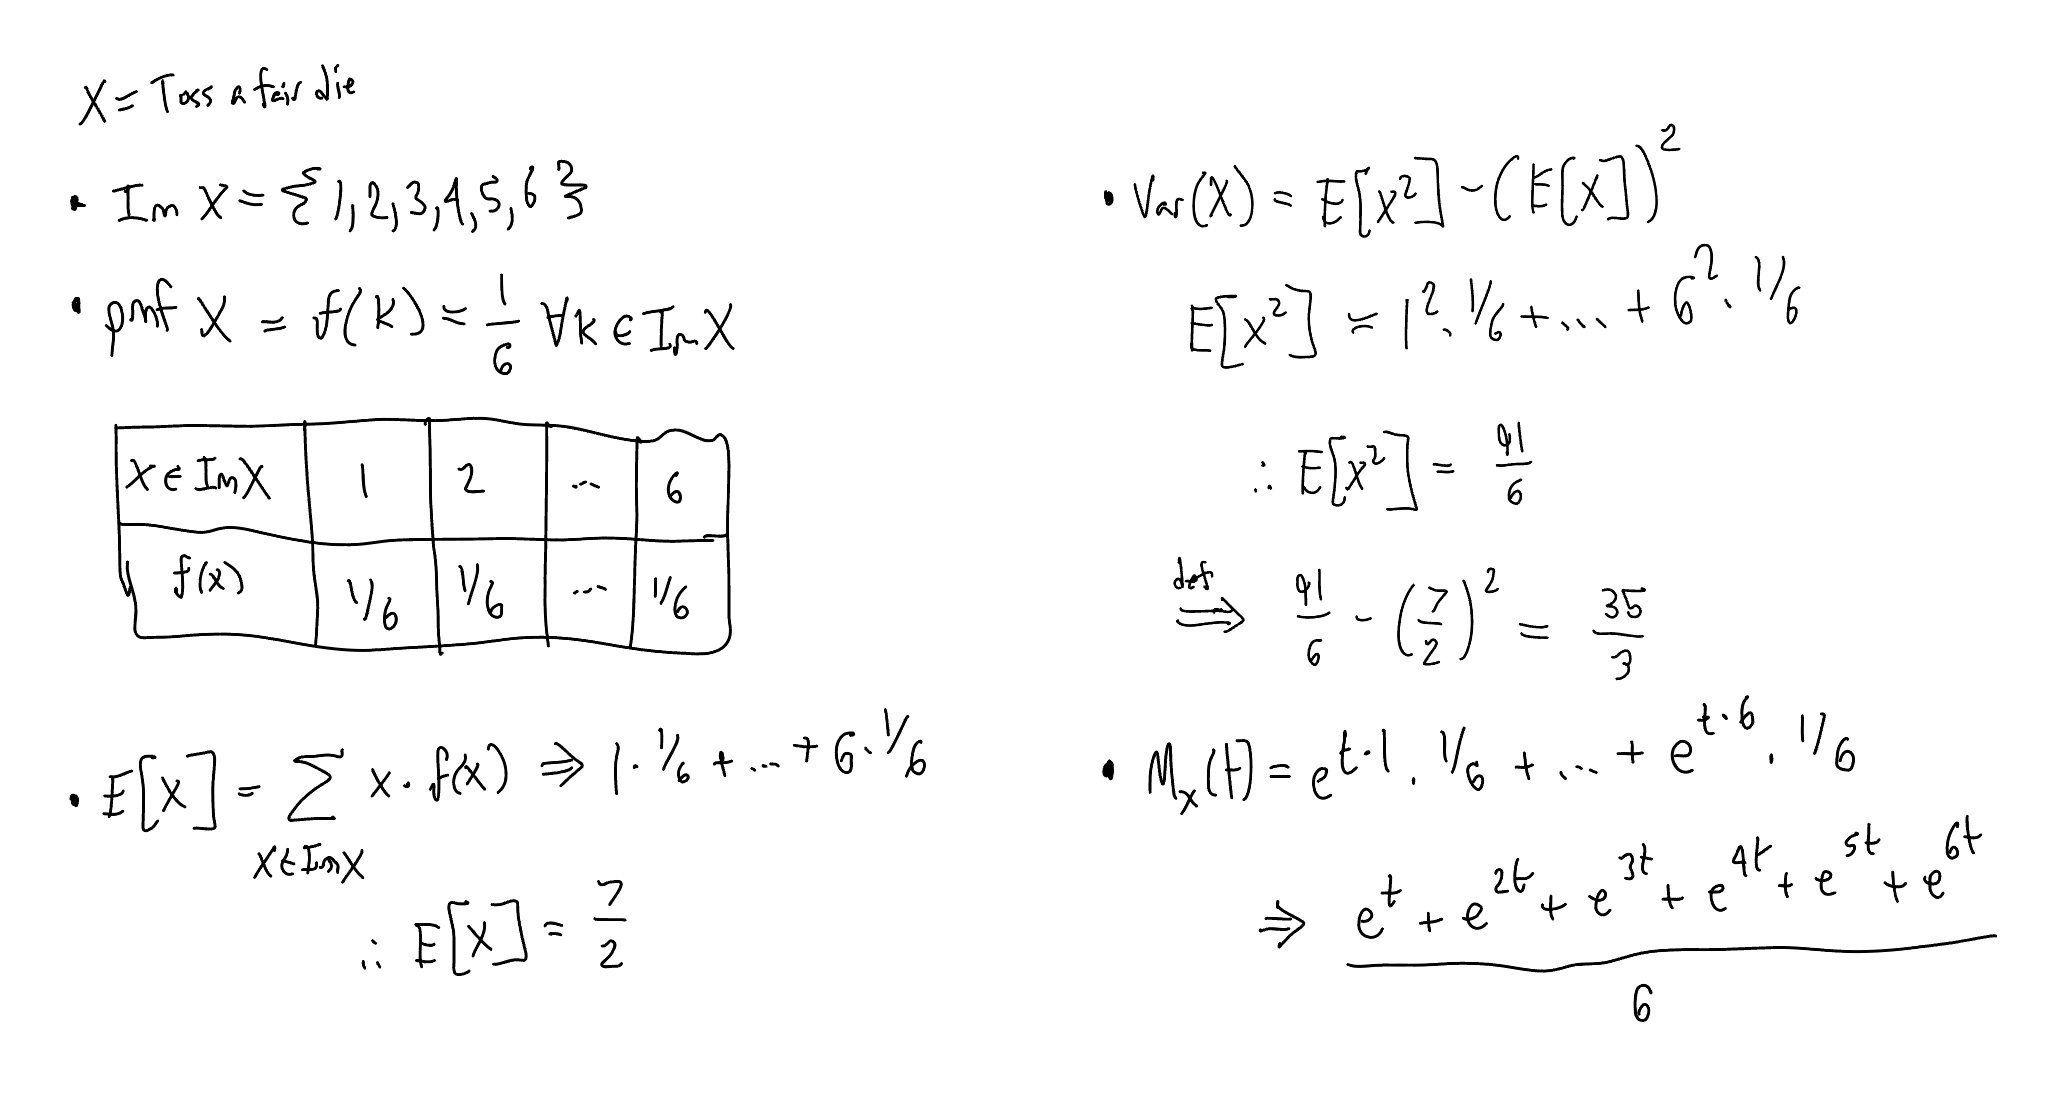 X = Toss a fair die
• Im X = {1,2,3,4,5,6}
• pmf X = f(k) = 1/6 ∀k ∈ Im X
x ∈ Im X | 1 | 2 | ... | 6
f(x) | 1/6 | 1/6 | ... | 1/6
• E[X] = ∑_{x∈Im X} x · f(x) ⇒ 1 · 1/6 + ... + 6 · 1/6
∴ E[X] = 7/2
• Var(X) = E[X²] - (E[X])²
E[X²] = 1² · 1/6 + ... + 6² · 1/6
∴ E[X²] = 91/6
def ⇒ 91/6 - (7/2)² = 35/3
• M_x(t) = e^{t·1} · 1/6 + ... + e^{t·6} · 1/6
⇒ (e^t + e^{2t} + e^{3t} + e^{4t} + e^{5t} + e^{6t})/6